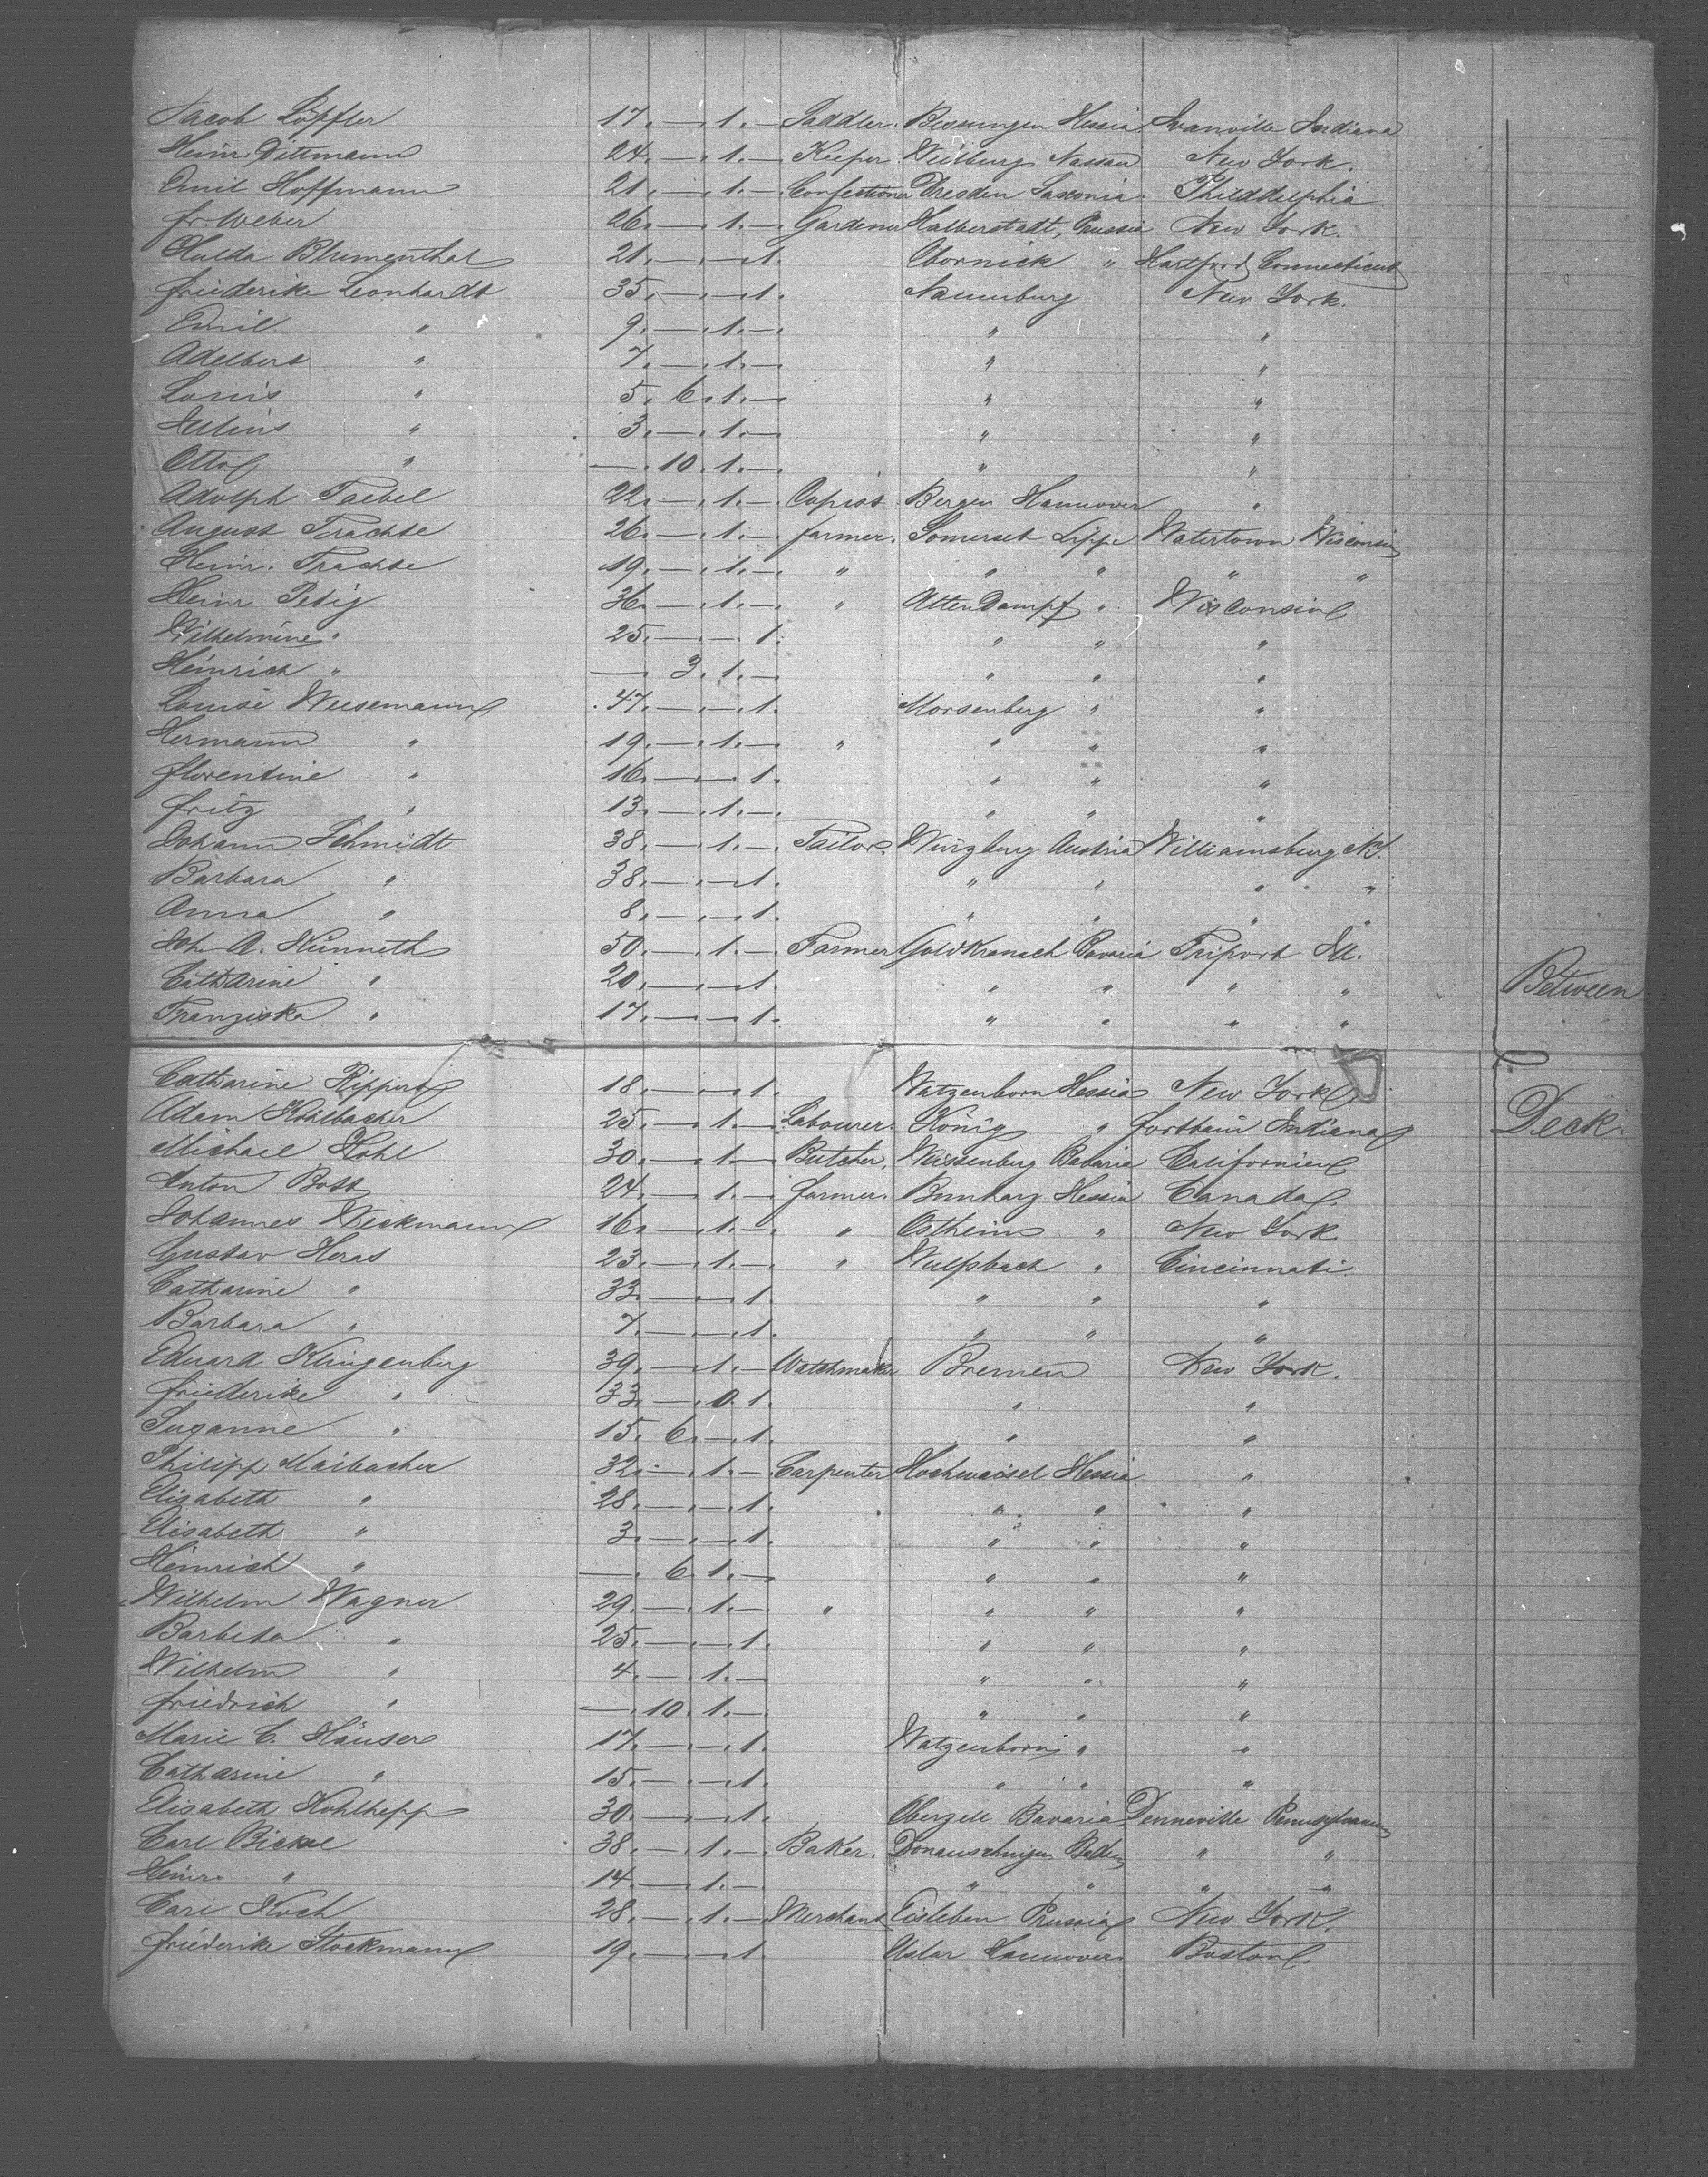 Jacob Löpfler 17. — 1. — Saddler. Bessungen Hessia Ivanville Indiana
Heinr. Dittmann 24. — 1. — Keeper Weilburg Nassau New York.
Emil Hoffmann 21. — 1. — Confectioner Dresden Saxonia Philadelphia
Fr. Weber 26. — 1. — Gardener Halberstadt, Prussia New York.
Hulda Blumenthal 21. — — 1. Obornick " Hartford Connecticut
Friederike Leonhardt 35. — — 1. Naumburg New York.
Emil " 9. — 1. — " "
Adelbert " 7. — 1. — " "
Louis " 5. 6. 1. — " "
Julius " 3. — 1. — " "
Otto " — 10. 1. — " "
Adolph Taebel 22. — 1. — Copist Bergen Hannover "
August Trachte 26. — 1. — Farmer. Somerset Lippe Watertown Wisconsin
Heinr. Trachte 19. — 1. — " " " " "
Heinr Petig 36. — 1. — " Alten Dampf " Wisconsin
Wilhelmine " 25. — — 1. " " "
Heinrich " — 3. 1. — " " "
Louise Wiesemann 47. — — 1. Morsenberg " "
Hermann " 19. — 1. — " " " "
Florentine " 16. — — 1. " " "
Fritz " 13. — 1. — " " "
Johann Schmidt 38. — 1. — Tailor. Würzburg Austria Williamsburg N.Y.
Barbara " 38. — — 1. " " " "
Anna " 8. — — 1. " " " "
Joh. A. Künneth 50. — 1. — Farmer Goldkranach Bavaria Friport Ill.
Catharine " 20. — — 1. " " " "
Franziska " 17. — — 1. " " " "
Between
Catharine Rippert 18. — — 1. Watzenborn Hessia New York
Adam Kohlbacher 25. — 1. — Labourer. König " Forthain Indiana
Deck.
Michael Hohl 30. — 1. — Butcher. Weissenburg Bavaria Californien
Anton Bott 24. — 1. — Farmer Hessia Canada.
Johannes Weckmann 16. — 1. — " Ostheim " New York
Gustav Heras 23. — 1. — " Wulfsbach " Cincinnati.
Catharine " 33. — — 1. " " "
Barbara " 7. — — 1. " " "
Eduard Klingenberg 39. — 1. — Watchmaker Bremen New York.
Friederike " 33. — 0. 1. " "
Suzanne " 15. 6. — 1. " "
Philipp Maibacher 32. — 1. — Carpenter Hochweisel Hessia "
Elisabeth " 28. — — 1. " " "
Elisabeth " 3. — — 1. " " "
Heinrich " — 6. 1. — " " "
Wilhelm Wagner 29. — 1. — " " " "
Barbeta " 25. — — 1. " " "
Wilhelm " 4. — 1. — " " "
Friedrich " — 10. 1. — " " "
Marie C. Häuser 17. — — 1. Watzenborn " "
Catharine " 15. — — 1. " " "
Elisabeth Kohlhepp 30. — — 1. Oberzell Bavaria Denneville Pennsylvania
Carl Bickel 38. — 1. — Baker. Donaueschingen Baden " "
Heinr. " 14. — 1. — " " " "
Carl Koch 28. — 1. — Merchant Eisleben Prussia New York.
Friederike Stockmann 19. — — 1. Uslar Hannover Boston.